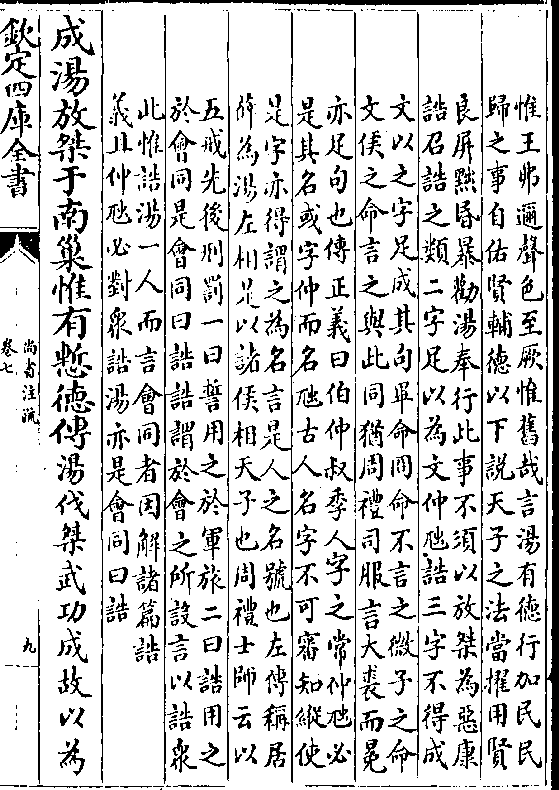 惟王弗邇聲色至厥惟舊哉言湯有德行加民民
歸之事自佑賢輔德以下說天子之法當擢用賢
良屏黜昏暴勸湯奉行此事不須以放桀為惡康
誥召誥之類二字足以為文仲虺誥三字不得成
文以之字足成其句畢命冏命不言之微子之命
文侯之命言之與此同猶周禮司服言大裘而冕
亦足句也傳正義曰伯仲叔季人字之常仲虺必
是其名或字仲而名虺古人名字不可審知縱使
是字亦得謂之為名言是人之名號也左傳稱居
薛為湯左相是以諸侯相天子也周禮士師云以
五戒先後刑罰一曰誓用之於軍旅二曰誥用之
於會同是會同曰誥誥謂於會之所設言以誥衆
此惟誥湯一人而言會同者因解諸篇誥
義且仲虺必對衆誥湯亦是會同曰誥
成湯放桀于南巢惟有慙德傳湯伐桀武功成故以為
欽定四庫全書
尚書注疏
卷七
九